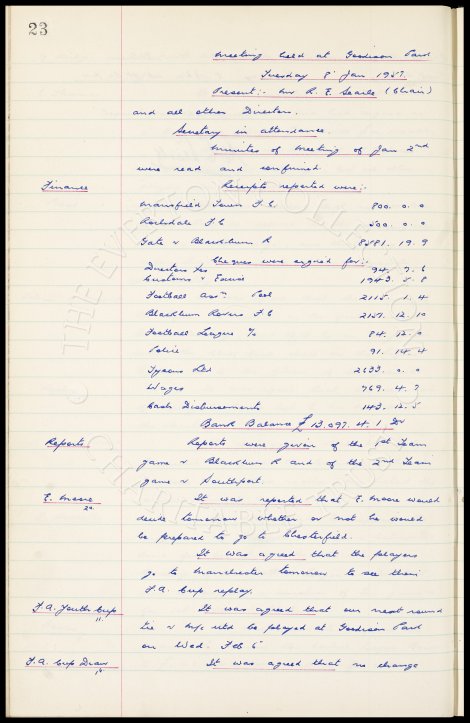 23
Meeting held at Goodison Park
Tuesday 8" Jan 1957.
Present:- Mr R. E. Searle (Chair)
and all other Directors.
Secretary in attendance.
Minutes of meeting of Jan 2nd
were read and confirmed.
Finance Receipts reported were:-
Mansfield Town F.C. 800. 0. 0
Rochdale F C 500. 0. 0
Gate v Blackburn R 8581. 19. 9
Cheques were signed for:-
Directors fees 94. 7. 6
Customs & Excise 1943. 5. 8
Football Assn Pool 2115. 1. 4
Blackburn Rovers F C 2157. 12. 10
Football League % 84. 12. 0
Police 91. 14. 4
Tysons Ltd 2633. 0. 0
Wages 769. 4. 7
Cash Disbursements 143. 12. 5
Bank Balance £13,097. 4. 1 Dr
Reports Reports were given of the 1st Team
game v Blackburn R and of the 2nd Team
game v Southport.
E. Moore It was reported that E. Moore would
decide tomorrow whether or not he would
be prepared to go to Chesterfield.
It was agreed that the players
go to Manchester tomorrow to see their
F.A. Cup replay.
F.A. Youth Cup It was agreed that our next round
tie v M/c Utd be played at Goodison Park
on Wed. Feb 6"
F.A. Cup Draw It was agreed that no change
THE EVERTON COLLECTION
CHARITABLE TRUST